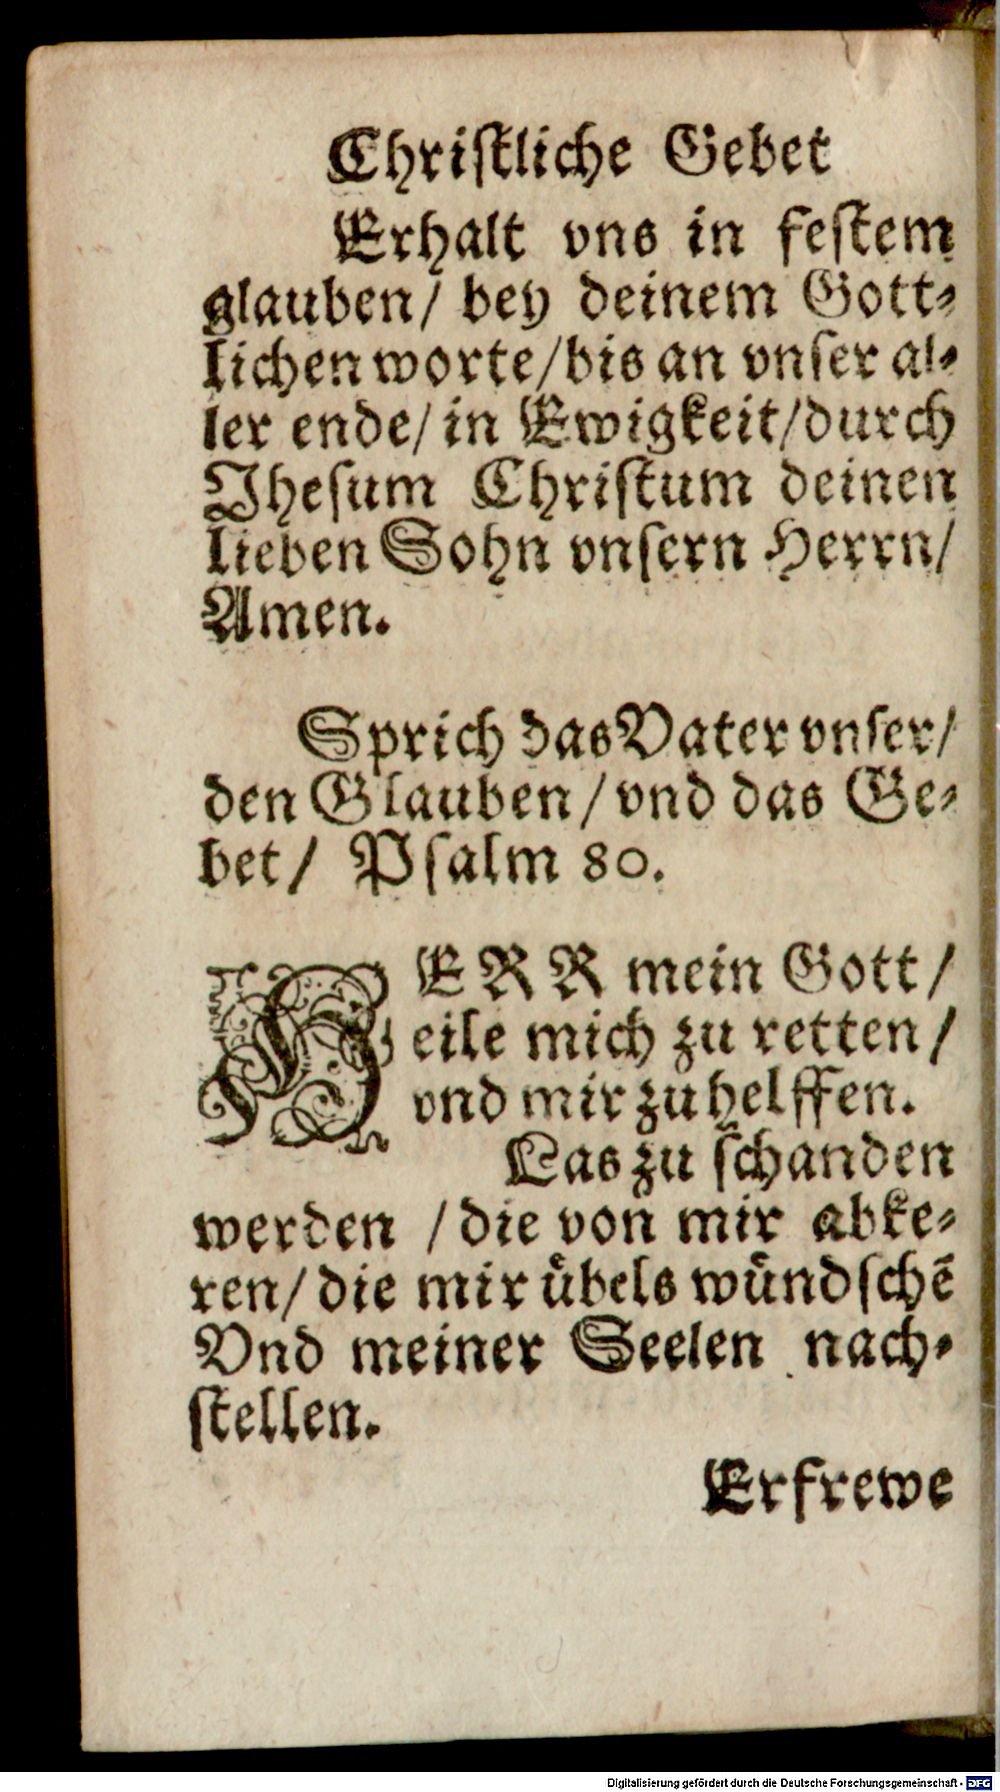 Chriſtliche Gebet
Erhalt vns in feſtem
glauben/ bey deinem Gott⸗
lichen worte/bis an vnſer al⸗
ler ende/in Ewigkeit/durch
Jheſum Chriſtum deinen
lieben Sohn vnſern Herrn/
Amen.
Sprich das Vater vnſer/
den Glauben/vnd das Ge⸗
bet/ Pſalm 80.
HERR mein Gott/
eile mich zu retten/
vnd mir zu helffen.
Las zu ſchanden
werden /die von mir abke⸗
ren/die mir uͤbels wuͤndſchẽ
Vnd meiner Seelen nach⸗
ſtellen.
Erfrewe
Digitalisierung gefördert durch die Deutsche Forschungsgemeinschaft - DFG